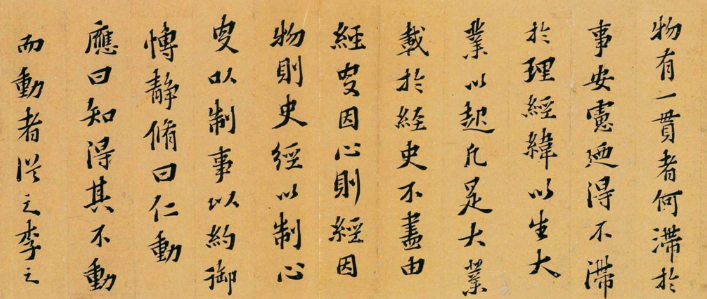 物有一貫者何滯於
事安慮廼得不滯
於理經緯以生大
業以起凡是大業
載於経史不盡由
經史因心則經因
物則史經以制心
史以制事以約御
博静脩曰仁動
應曰知得其不動
而動者從之李之